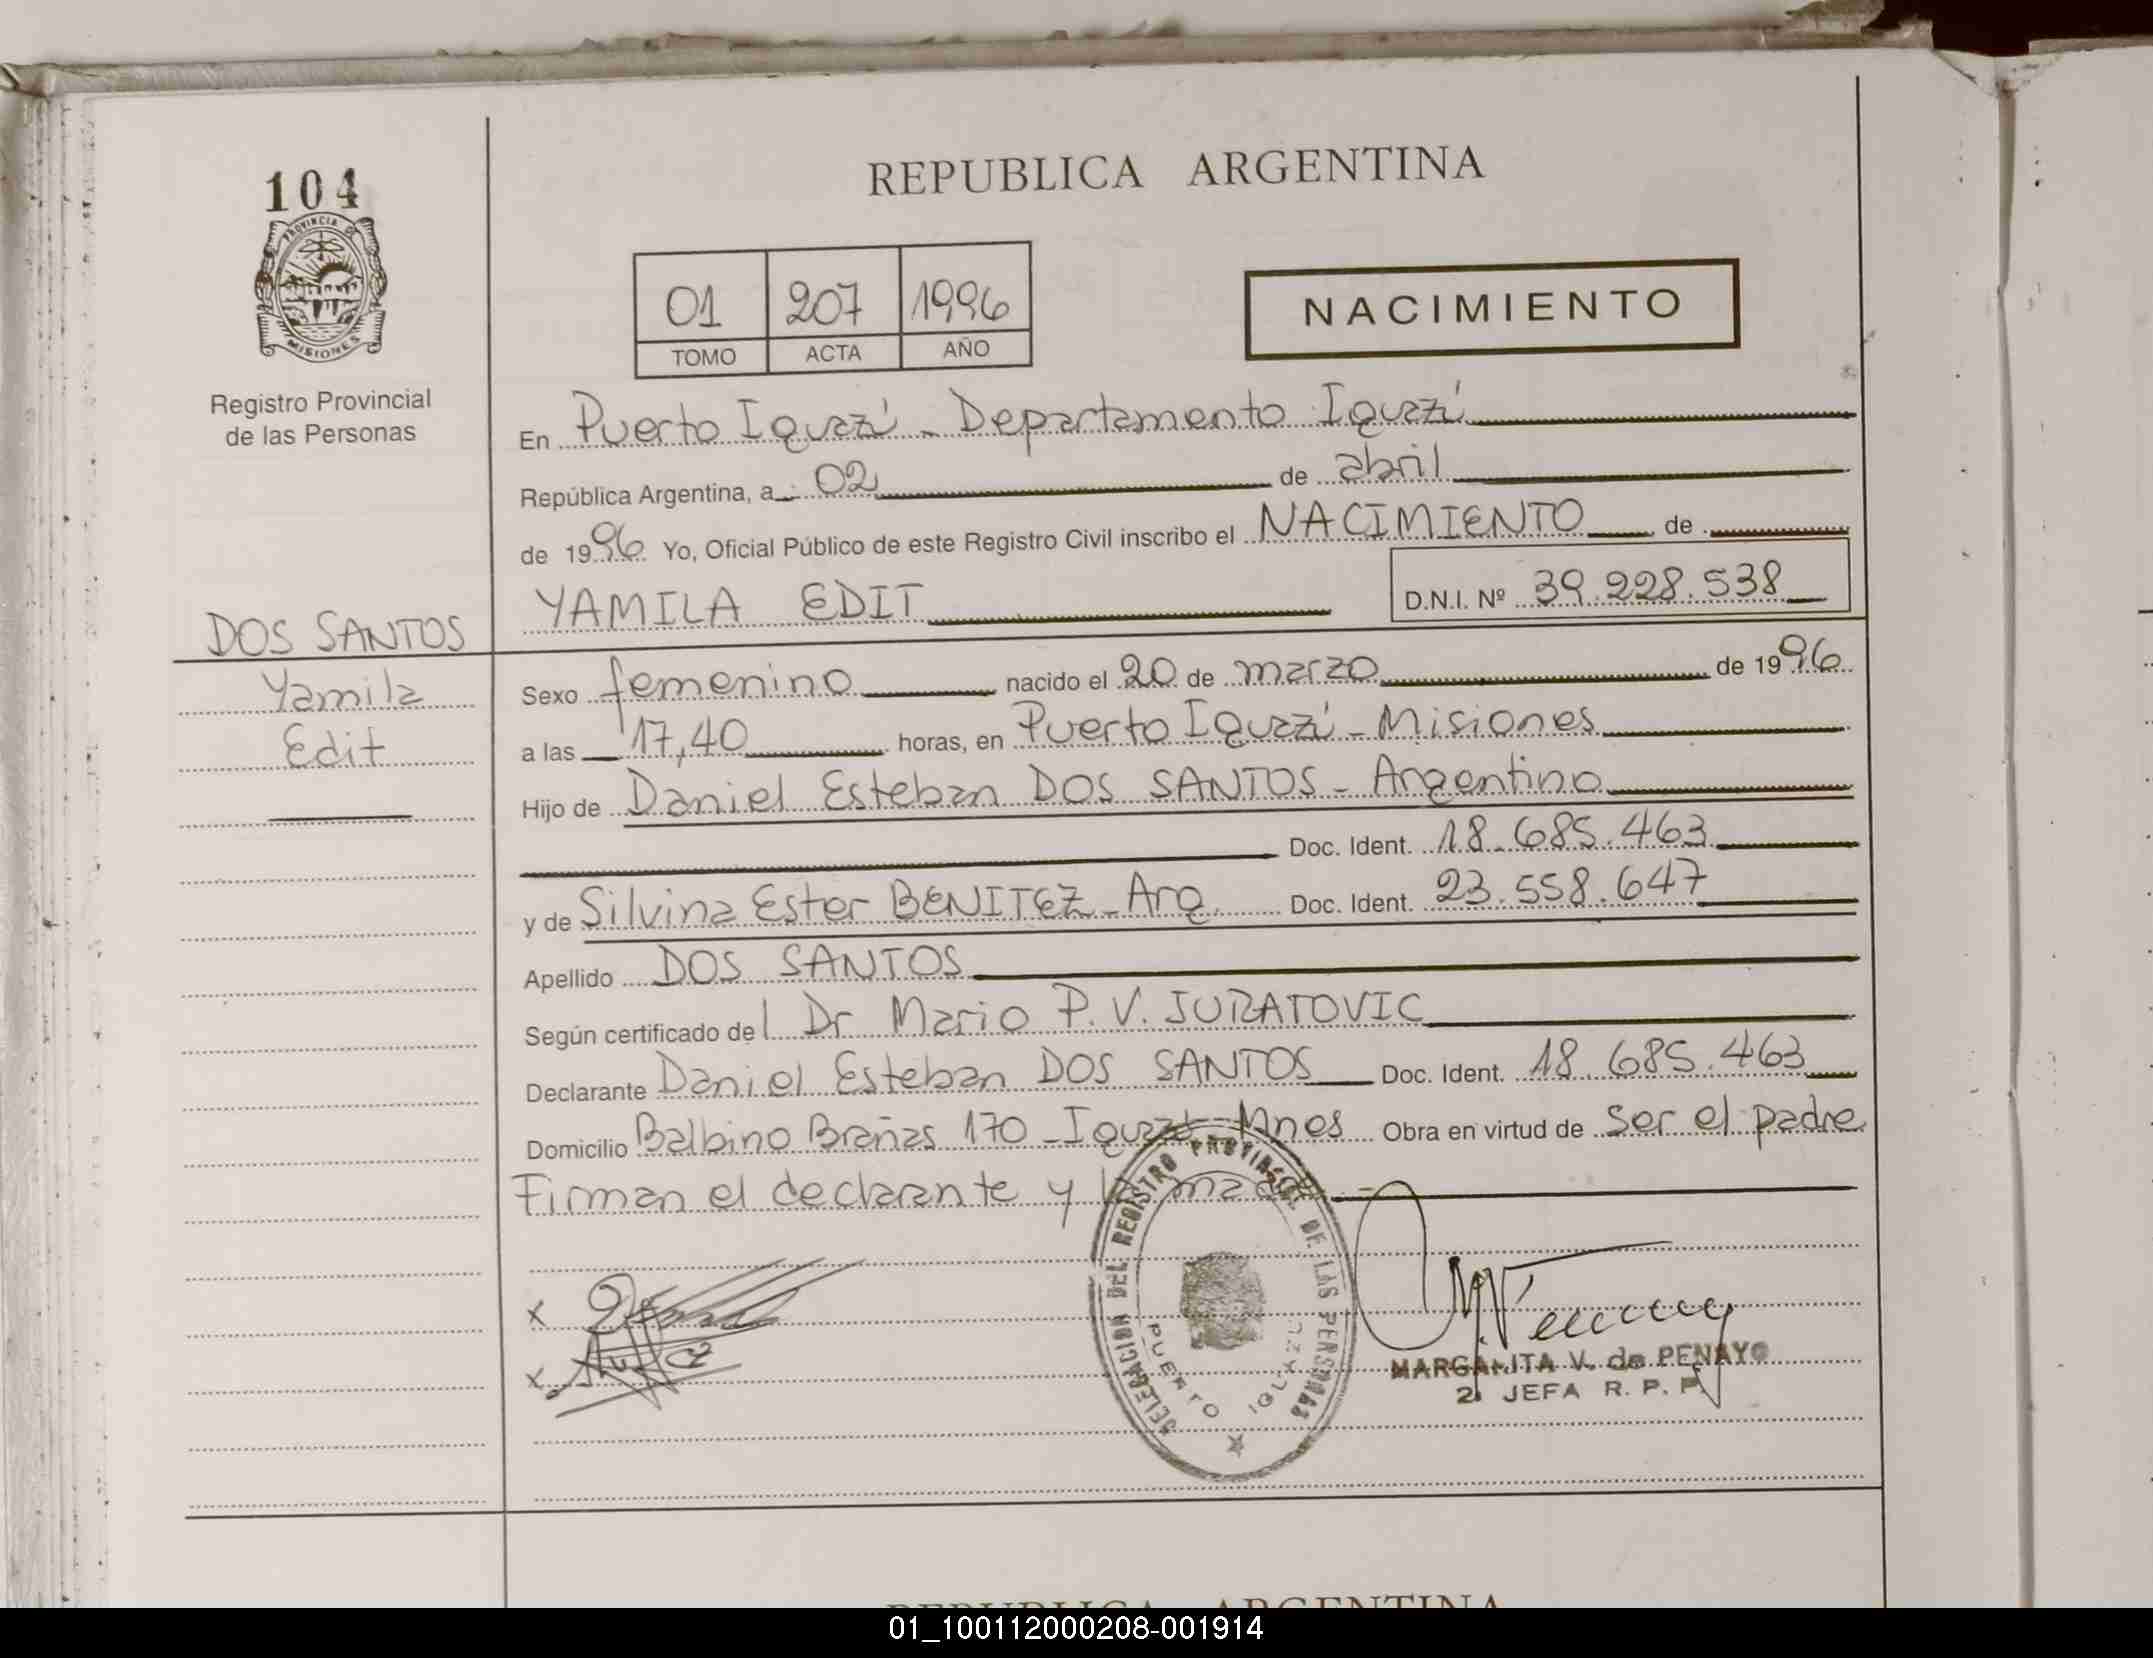 104
PROVINCIA DE
MISIONES
Registro Provincial
de las Personas
DOS SANTOS
Yamila
Edit
REPUBLICA ARGENTINA
01 207 1996
TOMO ACTA AÑO
NACIMIENTO
En Puerto Iguazú - Departamento Iguazú
República Argentina, a 02 de abril
de 1996 Yo, Oficial Público de este Registro Civil inscribo el NACIMIENTO de
YAMILA EDIT D.N.I. Nº 39.228.538
Sexo femenino nacido el 20 de marzo de 1996
a las 17,40 horas, en Puerto Iguazú - Misiones
Hijo de Daniel Esteban DOS SANTOS - Argentino
Doc. Ident. 18.685.463
y de Silvina Ester BENITEZ - Arg. Doc. Ident. 23.558.647
Apellido DOS SANTOS
Según certificado del Dr Mario P. V. JURATOVIC
Declarante Daniel Esteban DOS SANTOS Doc. Ident. 18.685.463
Domicilio Balbino Brañas 170 - Iguazú - Mnes Obra en virtud de ser el padre
Firman el declarante y la madre
x
x
DELEGACION DEL REGISTRO PROVINCIAL DE LAS PERSONAS
PUERTO IGUAZU
MARGARITA V. de PENAYO
2ª JEFA R. P. P.
REPUBLICA ARGENTINA
01_100112000208-001914